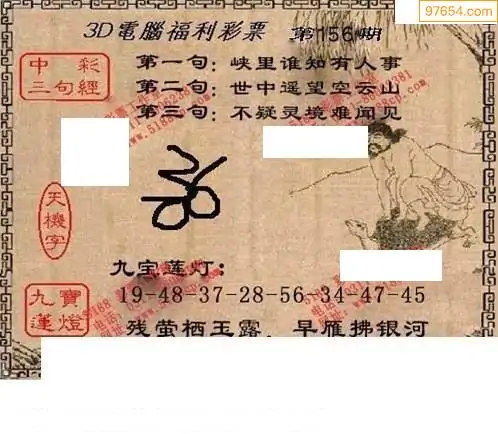 97654.com
3D電腦福利彩票 第156期
中彩三句經
第一句：峡里谁知有人事
第二句：世中遥望空云山
第三句：不疑灵境难闻见
天機字
九宝莲灯：
19-48-37-28-56-34-47-45
九寶蓮燈
残萤栖玉露，早雁拂银河